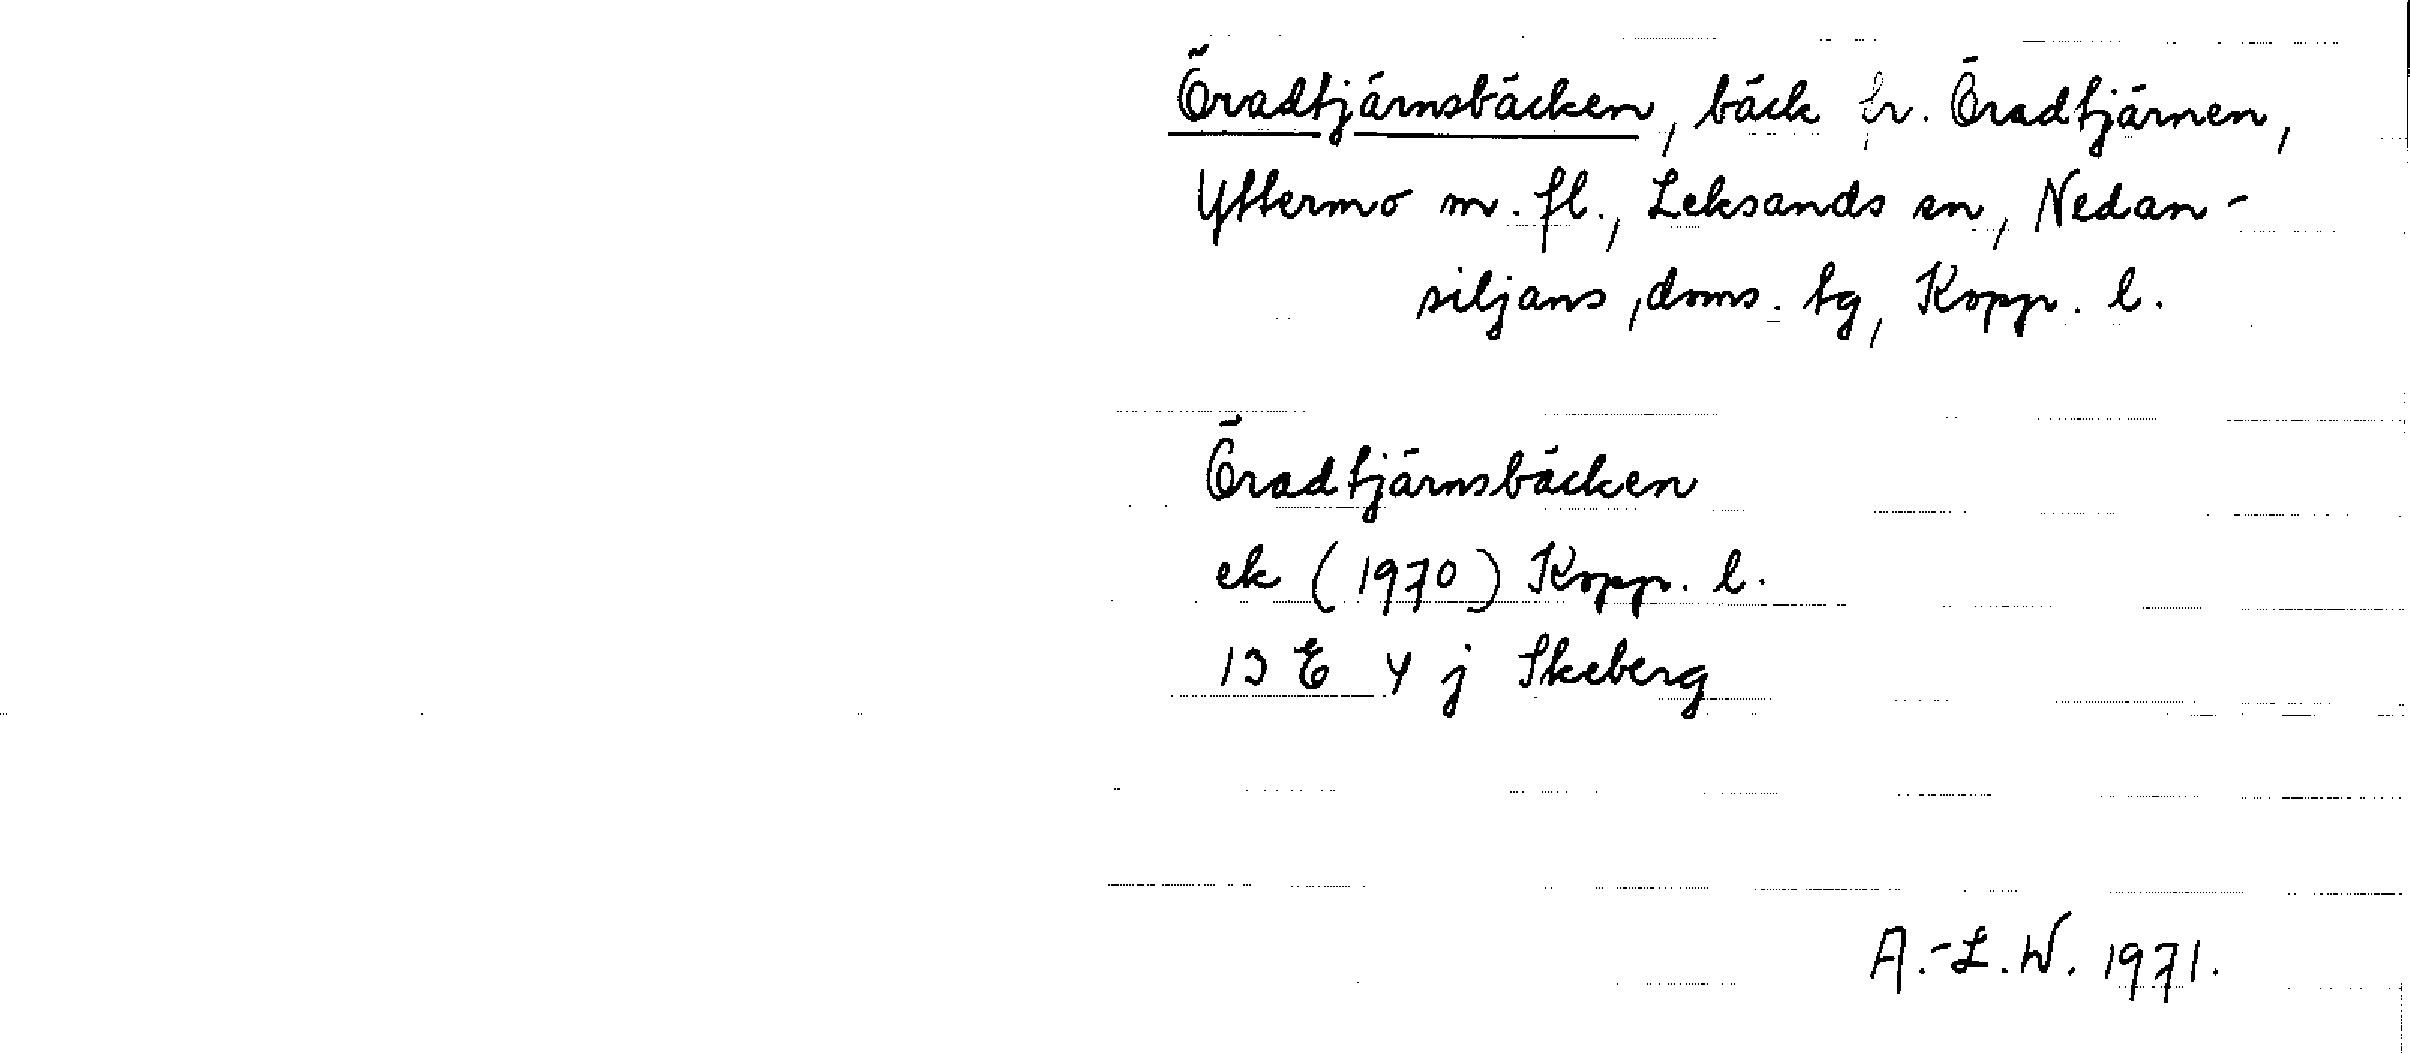 Öradtjärnsbäcken, bäck fr. Öradtjärnen,
Yttermo m. fl., Leksands sn, Nedan-
siljans doms. tg, Kopp. l.
Öradtjärnsbäcken
ek (1970) Kopp. l.
13 E 4 j Skeberg
A.-L.W. 1971.